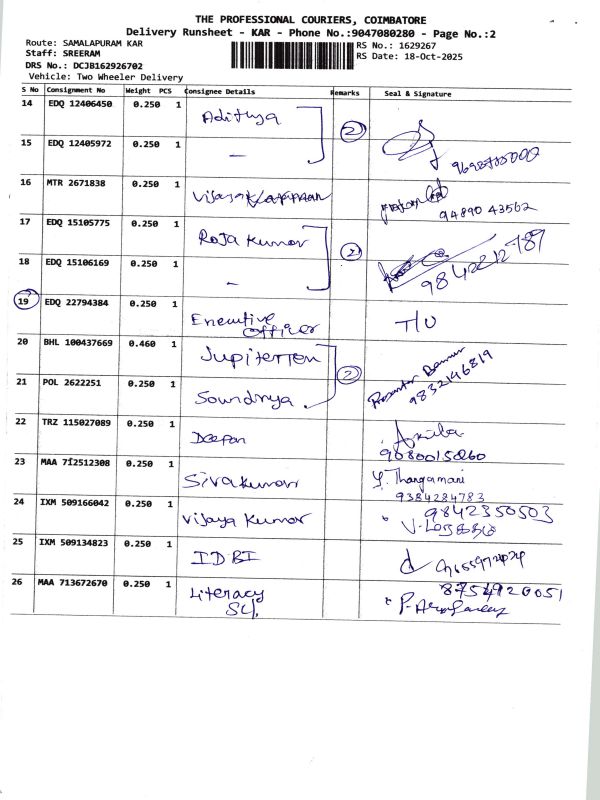 THE PROFESSIONAL COURIERS, COIMBATORE
Delivery Runsheet - KAR - Phone No.:9047080280 - Page No.:2
Route: SAMALAPURAM KAR
RS No.: 1629267
Staff: SREERAM
RS Date: 18-Oct-2025
DRS No.: DCJB162926702
Vehicle: Two Wheeler Delivery
S No Consignment No Weight PCS Consignee Details Remarks Seal & Signature
14 EDQ 12406450 0.250 1 Adithya
2
15 EDQ 12405972 0.250 1 -
16 MTR 2671838 0.250 1
94890 43562
17 EDQ 15105775 0.250 1 Raja Kumar
2
18 EDQ 15106169 0.250 1 -
9842212789
19 EDQ 22794384 0.250 1 Executive Officer T/U
20 BHL 100437669 0.460 1
2
21 POL 2622251 0.250 1 Soundrya.
9832146819
22 TRZ 115027089 0.250 1 Deepan
9080015060
23 MAA 712512308 0.250 1 Siva Kumar Y. Thangamani
9384284783
24 IXM 509166042 0.250 1 Vijaya Kumar 9842350503
25 IXM 509134823 0.250 1 IDBI
26 MAA 713672670 0.250 1 Literacy 8754920051